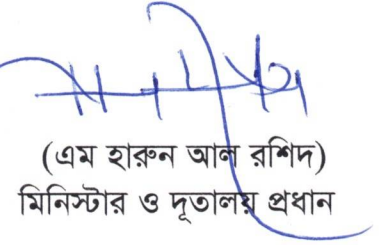 (এম হারুন আল রশিদ)
মিনিস্টার ও দূতালয় প্রধান